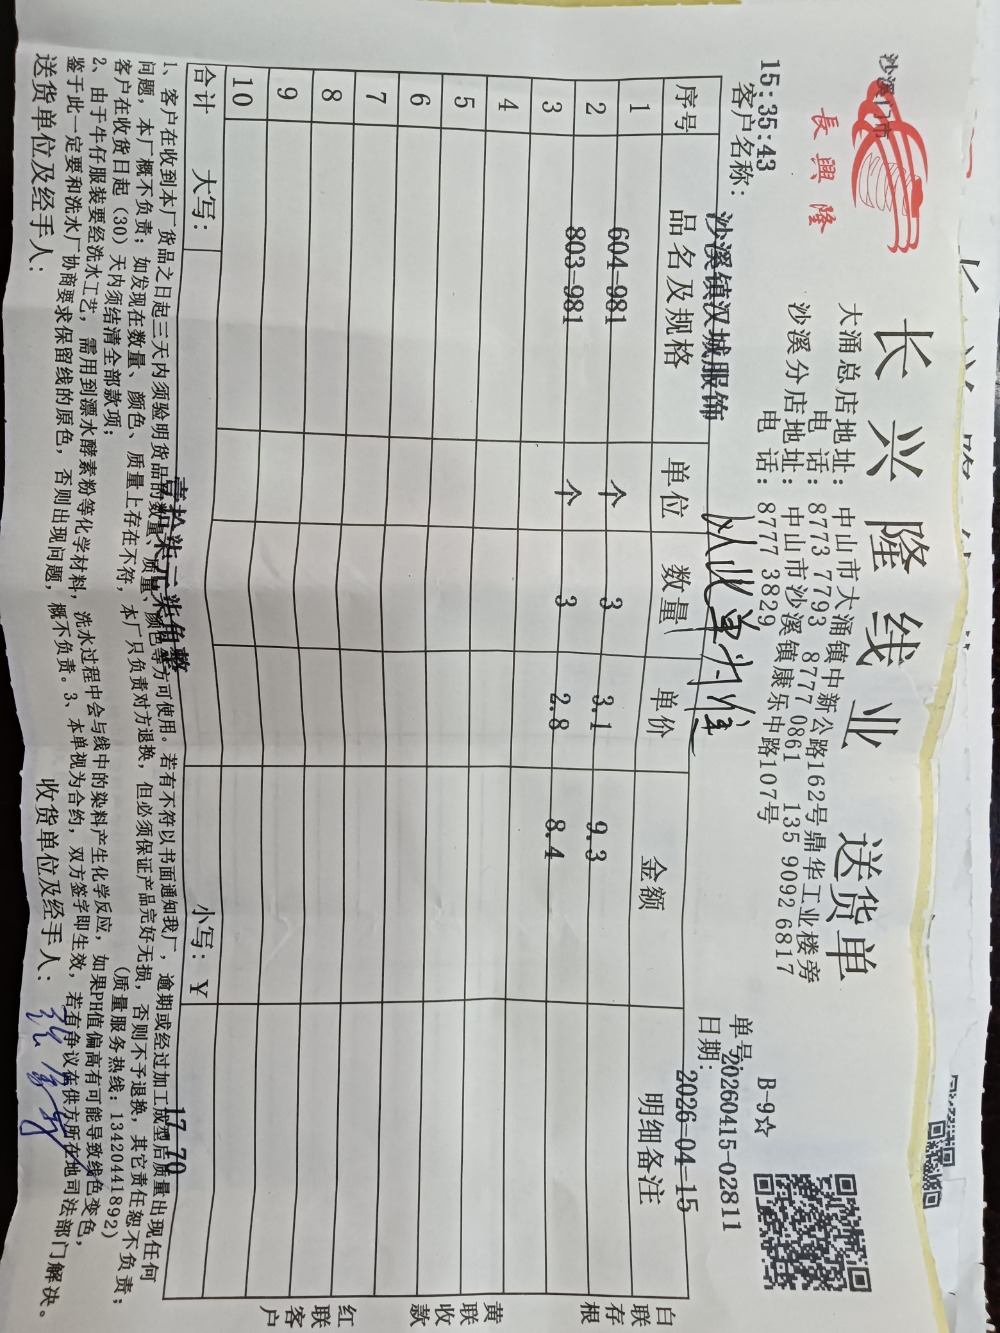 沙溪门市
長興隆
长兴隆线业 送货单
大涌总店地址：中山市大涌镇中新公路162号鼎华工业楼旁
电话：8773 7793 8777 0861 135 9092 6817
沙溪分店地址：中山市沙溪镇康乐中路107号
电话：8777 3829
B-9☆
单号：20260415-02811
日期：2026-04-15
15:35:43
客户名称：沙溪镇汉城服饰
以此单为准
序号 品名及规格 单位 数量 单价 金额 明细备注
1 604-981 个 3 3.1 9.3
2 803-981 个 3 2.8 8.4
3
4
5
6
7
8
9
10
合计 大写：壹拾柒元柒角整 小写：￥17.70
白联存根
黄联收款
红联客户
1、客户在收到本厂货品之日起三天内须验明货品的数量、质量、颜色等方可使用。若有不符以书面通知我厂，逾期或经过加工成型后质量出现任何
问题，本厂概不负责；如发现在数量、颜色、质量上存在不符，本厂只负责对方退换，但必须保证产品完好无损，否则不予退换，其它责任恕不负责；
客户在收货日起（30）天内须结清全部款项； （质量服务热线：13420441892）
2、由于牛仔服装要经洗水工艺，需用到漂水酵素粉等化学材料，洗水过程中会与线中的染料产生化学反应，如果PH值偏高有可能导致线色变色，
鉴于此一定要和洗水厂协商要求保留线的原色，否则出现问题，概不负责。3、本单视为合约，双方签字即生效，若有争议在供方所在地司法部门解决。
送货单位及经手人： 收货单位及经手人：